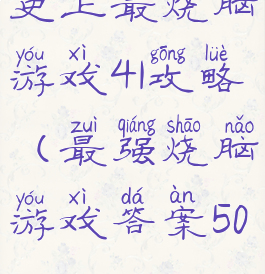 史上最烧脑
yóu xì gōng lüè
游戏41攻略
zuì qiáng shāo nǎo
（最强烧脑
yóu xì dá àn
游戏答案50